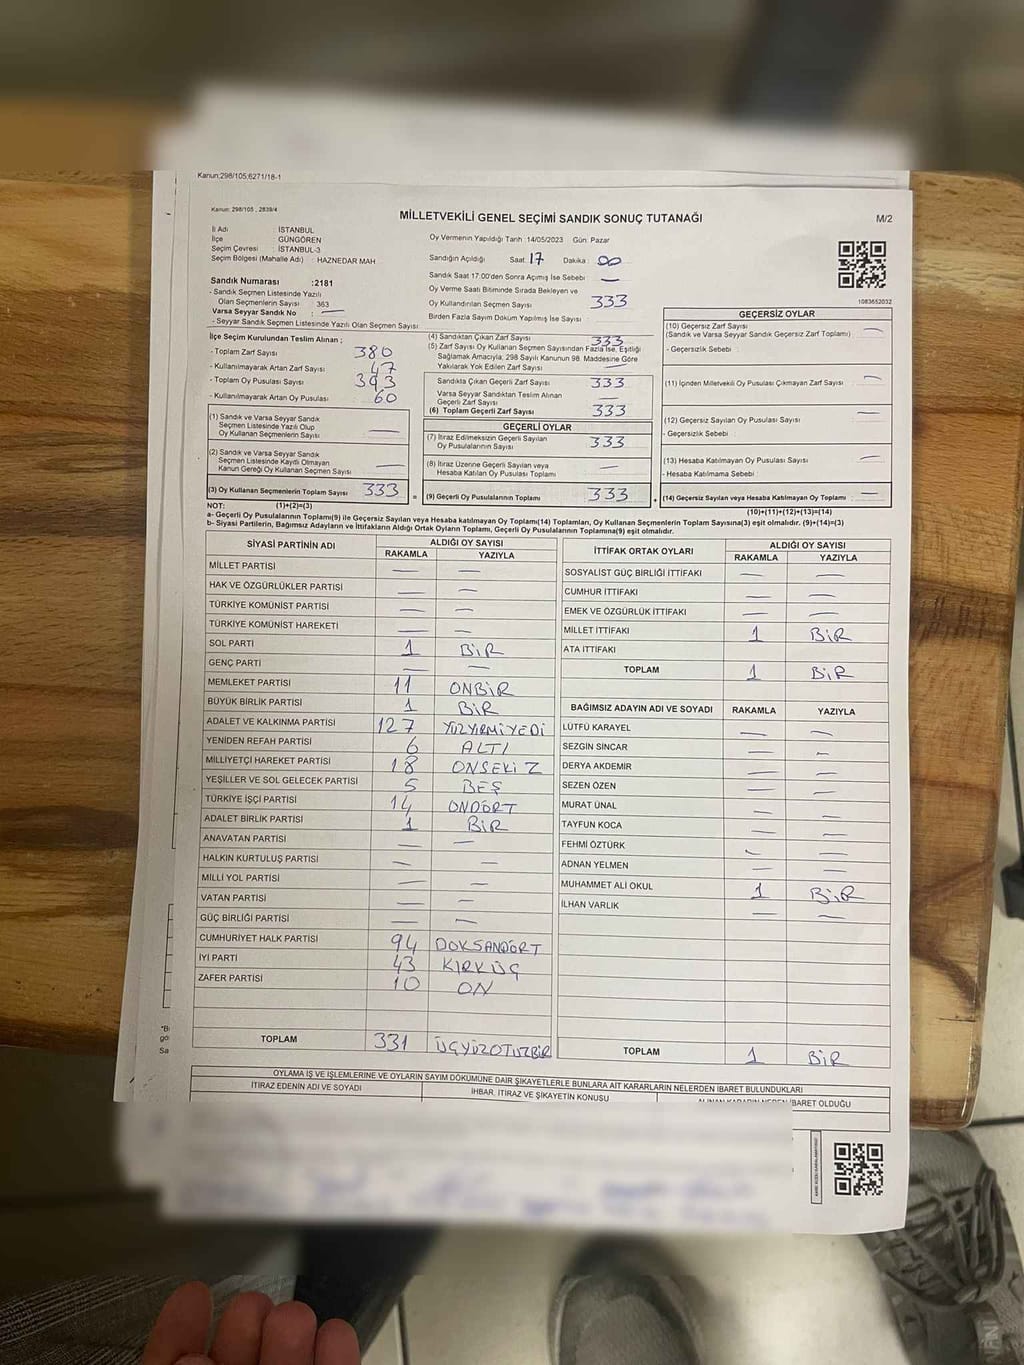 Kanun:298/105,6271/18-1
Kanun: 298/105 , 2839/4
MİLLETVEKİLİ GENEL SEÇİMİ SANDIK SONUÇ TUTANAĞI
M/2
İl Adı : İSTANBUL
İlçe : GÜNGÖREN
Seçim Çevresi : İSTANBUL-3
Seçim Bölgesi (Mahalle Adı) : HAZNEDAR MAH.
Sandık Numarası :2181
- Sandık Seçmen Listesinde Yazılı
Olan Seçmenlerin Sayısı 363
Varsa Seyyar Sandık No : —
- Seyyar Sandık Seçmen Listesinde Yazılı Olan Seçmen Sayısı
Oy Vermenin Yapıldığı Tarih :14/05/2023 Gün: Pazar
Sandığın Açıldığı Saat 17 Dakika : 00
Sandık Saat 17.00'den Sonra Açımış İse Sebebi : —
Oy Verme Saati Bitiminde Sırada Bekleyen ve
Oy Kullandırılan Seçmen Sayısı 333
Birden Fazla Sayım Döküm Yapılmış İse Sayısı :
1083652032
İlçe Seçim Kurulundan Teslim Alınan ;
- Toplam Zarf Sayısı 380
- Kullanılmayarak Artan Zarf Sayısı 47
- Toplam Oy Pusulası Sayısı 393
- Kullanılmayarak Artan Oy Pusulası 60
(1) Sandık ve Varsa Seyyar Sandık
Seçmen Listesinde Yazılı Olup
Oy Kullanan Seçmenlerin Sayısı —
(2) Sandık ve Varsa Seyyar Sandık
Seçmen Listesinde Kaydı Olmayan
Kanun Gereği Oy Kullanan Seçmen Sayısı —
(3) Oy Kullanan Seçmenlerin Toplam Sayısı 333
(4) Sandıktan Çıkan Zarf Sayısı 333
(5) Zarf Sayısı Oy Kullanan Seçmen Sayısından Fazla İse, Eşitliği
Sağlamak Amacıyla, 298 Sayılı Kanunun 98. Maddesine Göre
Yakılarak Yok Edilen Zarf Sayısı
Sandıkta Çıkan Geçerli Zarf Sayısı 333
Varsa Seyyar Sandıktan Teslim Alınan
Geçerli Zarf Sayısı —
(6) Toplam Geçerli Zarf Sayısı 333
GEÇERLİ OYLAR
(7) İtiraz Edilmeksizin Geçerli Sayılan
Oy Pusulalarının Sayısı 333
(8) İtiraz Üzerine Geçerli Sayılan veya
Hesaba Katılan Oy Pusulası Toplamı —
= (9) Geçerli Oy Pusulalarının Toplamı 333
GEÇERSİZ OYLAR
(10) Geçersiz Zarf Sayısı —
(Sandık ve Varsa Seyyar Sandık Geçersiz Zarf Toplamı)
- Geçersizlik Sebebi :
(11) İçinden Milletvekili Oy Pusulası Çıkmayan Zarf Sayısı —
(12) Geçersiz Sayılan Oy Pusulası Sayısı —
- Geçersizlik Sebebi
(13) Hesaba Katılmayan Oy Pusulası Sayısı —
- Hesaba Katılmama Sebebi
+ (14) Geçersiz Sayılan veya Hesaba Katılmayan Oy Toplamı —
NOT: (1)+(2)=(3) (10)+(11)+(12)+(13)=(14)
a- Geçerli Oy Pusulalarının Toplamı(9) ile Geçersiz Sayılan veya Hesaba katılmayan Oy Toplamı(14) Toplamları, Oy Kullanan Seçmenlerin Toplam Sayısına(3) eşit olmalıdır. (9)+(14)=(3)
b- Siyasi Partilerin, Bağımsız Adayların ve İttifakların Aldığı Ortak Oyların Toplamı, Geçerli Oy Pusulalarının Toplamına(9) eşit olmalıdır.
SİYASİ PARTİNİN ADI ALDIĞI OY SAYISI
RAKAMLA YAZIYLA
MİLLET PARTİSİ — —
HAK VE ÖZGÜRLÜKLER PARTİSİ — —
TÜRKİYE KOMÜNİST PARTİSİ — —
TÜRKİYE KOMÜNİST HAREKETİ — —
SOL PARTİ 1 BİR
GENÇ PARTİ — —
MEMLEKET PARTİSİ 11 ONBİR
BÜYÜK BİRLİK PARTİSİ 1 BİR
ADALET VE KALKINMA PARTİSİ 127 YÜZYİRMİYEDİ
YENİDEN REFAH PARTİSİ 6 ALTI
MİLLİYETÇİ HAREKET PARTİSİ 18 ONSEKİZ
YEŞİLLER VE SOL GELECEK PARTİSİ 5 BEŞ
TÜRKİYE İŞÇİ PARTİSİ 14 ONDÖRT
ADALET BİRLİK PARTİSİ 1 BİR
ANAVATAN PARTİSİ — —
HALKIN KURTULUŞ PARTİSİ — —
MİLLİ YOL PARTİSİ — —
VATAN PARTİSİ — —
GÜÇ BİRLİĞİ PARTİSİ — —
CUMHURİYET HALK PARTİSİ 94 DOKSANDÖRT
İYİ PARTİ 43 KIRKÜÇ
ZAFER PARTİSİ 10 ON
TOPLAM 331 ÜÇYÜZOTUZBİR
İTTİFAK ORTAK OYLARI ALDIĞI OY SAYISI
RAKAMLA YAZIYLA
SOSYALİST GÜÇ BİRLİĞİ İTTİFAKI — —
CUMHUR İTTİFAKI — —
EMEK VE ÖZGÜRLÜK İTTİFAKI — —
MİLLET İTTİFAKI 1 BİR
ATA İTTİFAKI
TOPLAM 1 BİR
BAĞIMSIZ ADAYIN ADI VE SOYADI RAKAMLA YAZIYLA
LÜTFÜ KARAYEL — —
SEZGİN SİNCAR — —
DERYA AKDEMİR — —
SEZEN ÖZEN — —
MURAT ÜNAL — —
TAYFUN KOCA — —
FEHMİ ÖZTÜRK — —
ADNAN YELMEN — —
MUHAMMET ALİ OKUL 1 BİR
İLHAN VARLIK — —
TOPLAM 1 BİR
OYLAMA İŞ VE İŞLEMLERİNE VE OYLARIN SAYIM DÖKÜMÜNE DAİR ŞİKAYETLERLE BUNLARA AİT KARARLARIN NELERDEN İBARET BULUNDUKLARI
İTİRAZ EDENİN ADI VE SOYADI
İHBAR, İTİRAZ VE ŞİKAYETİN KONUSU
İBARET OLDUĞU